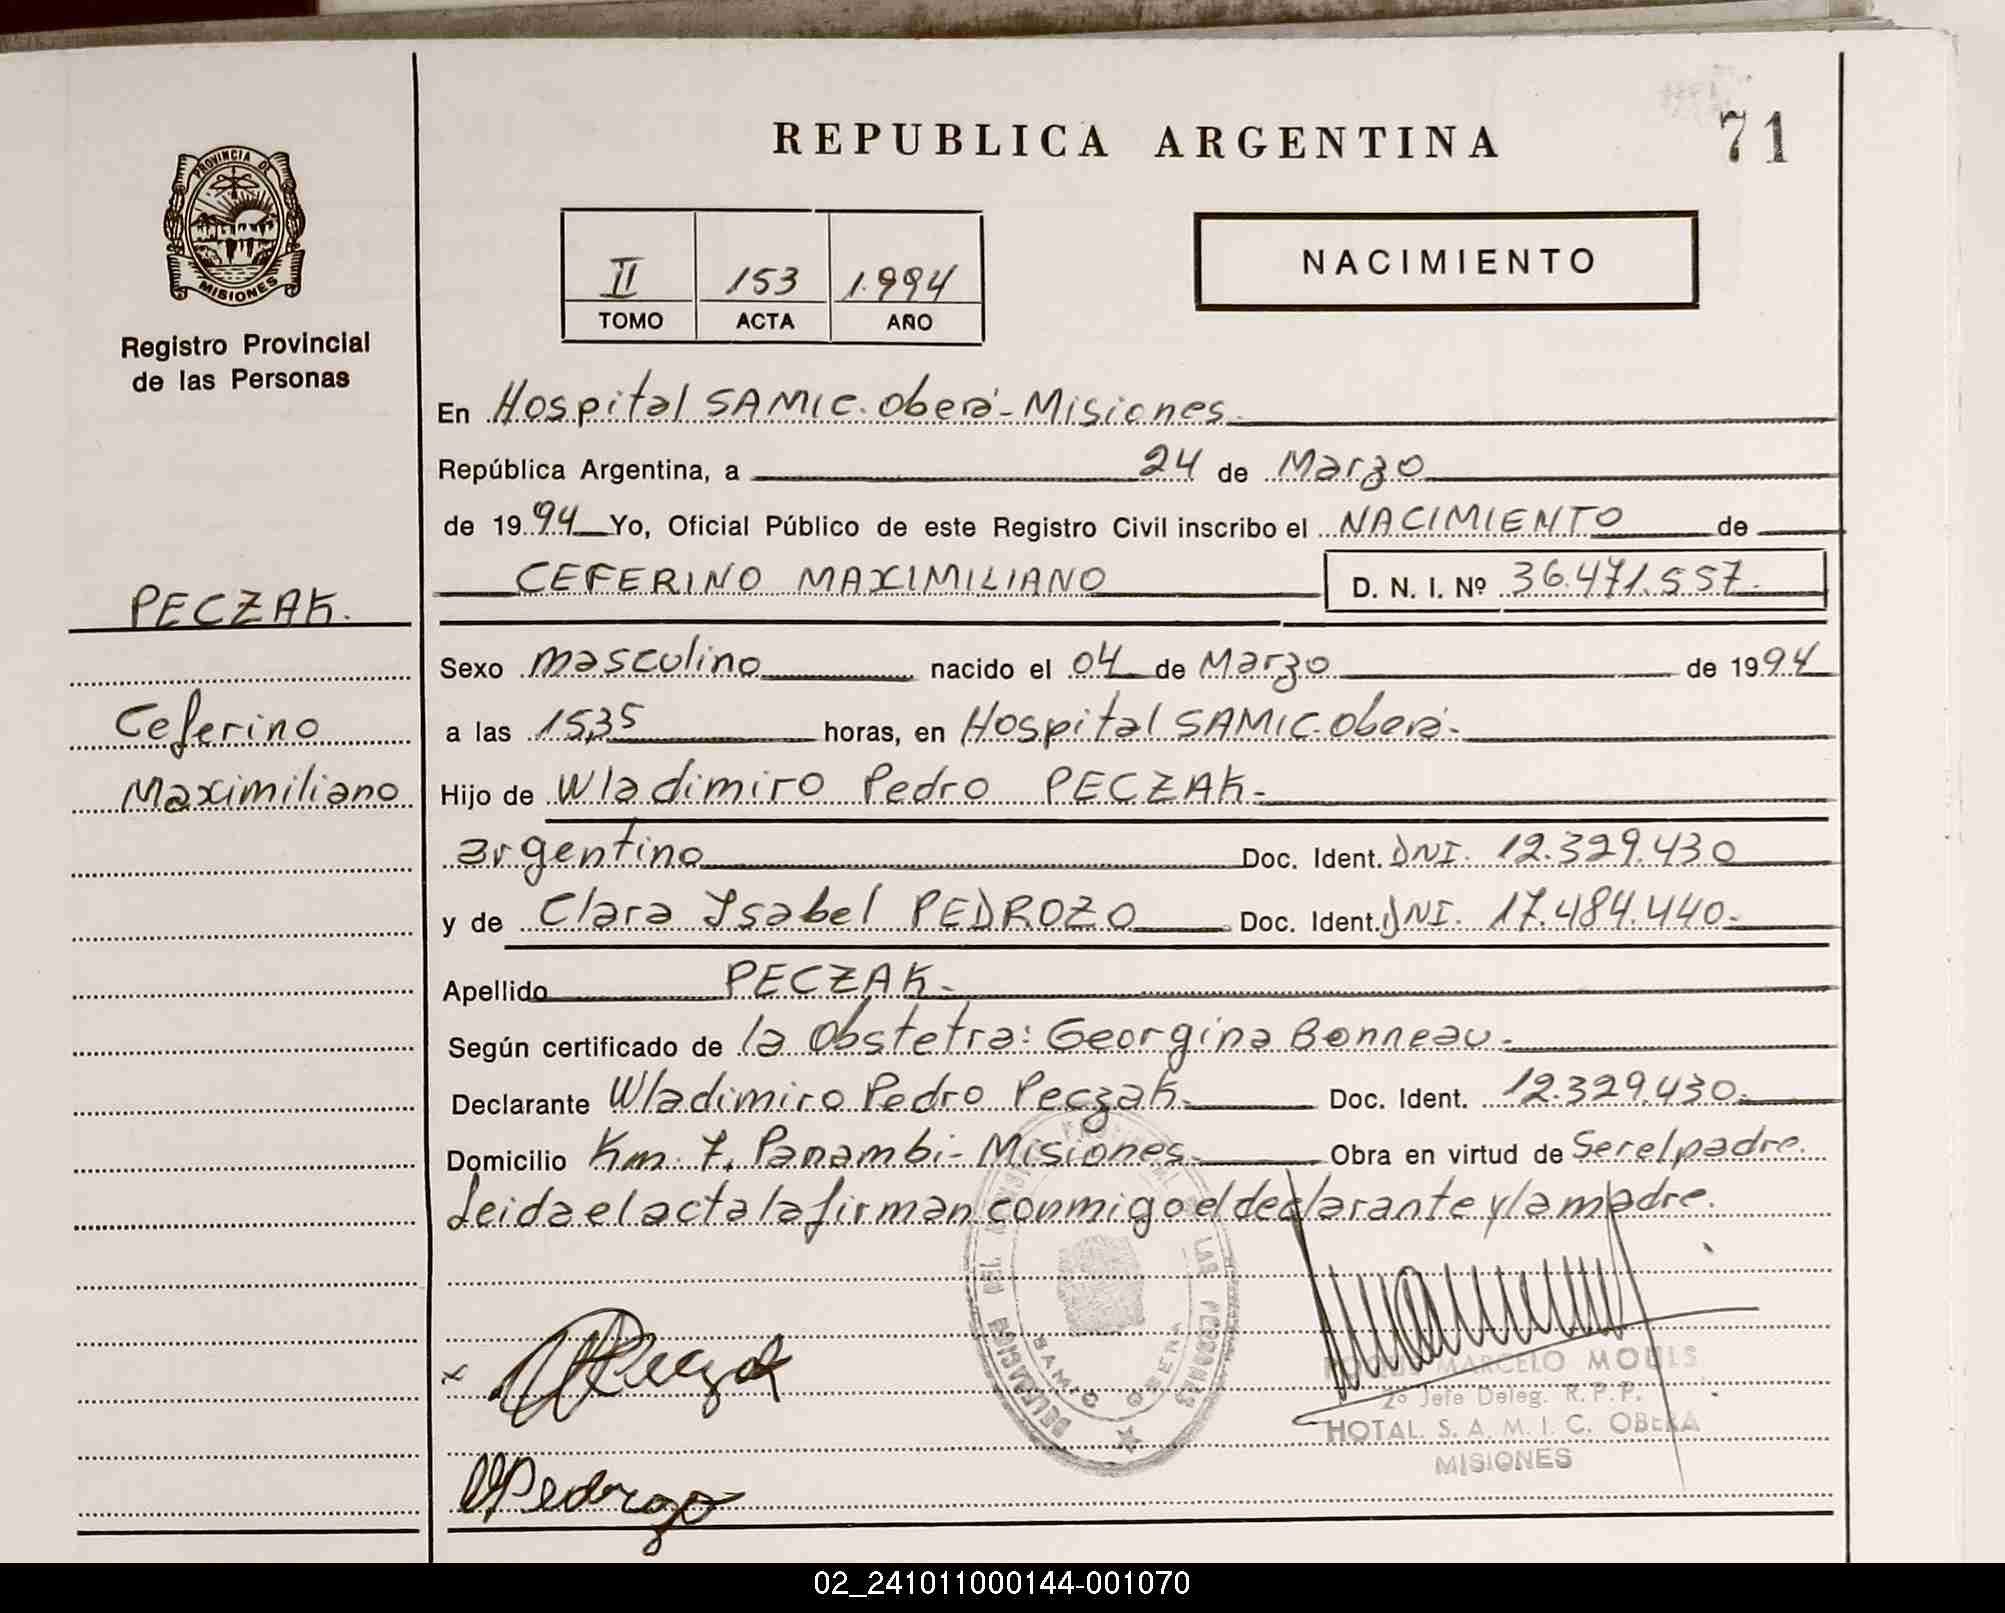 REPUBLICA ARGENTINA
71
PROVINCIA DE
MISIONES
Registro Provincial
de las Personas
II 153 1.994
TOMO ACTA AÑO
NACIMIENTO
En Hospital SAMIC. Oberá - Misiones.
República Argentina, a 24 de Marzo
de 1994 Yo, Oficial Público de este Registro Civil inscribo el NACIMIENTO de
CEFERINO MAXIMILIANO D. N. I. Nº 36.471.557.
PECZAK.
Sexo masculino nacido el 04 de Marzo de 1994
Ceferino
a las 15,35 horas, en Hospital SAMIC. Oberá-
Maximiliano
Hijo de Wladimiro Pedro PECZAK-
argentino Doc. Ident. DNI. 12.329.430
y de Clara Ysabel PEDROZO Doc. Ident. DNI. 17.484.440-
Apellido PECZAK-
Según certificado de la Obstetra: Georgina Bonneau-
Declarante Wladimiro Pedro Peczak- Doc. Ident. 12.329.430.
Domicilio Km. 7, Panambi - Misiones- Obra en virtud de Ser el padre.
Leida el acta la firman conmigo el declarante y la madre.
DELEGACION DEL REGISTRO PROVINCIAL DE LAS PERSONAS
SAMIC OBERA
x Peczak
Pedrozo
MARCELO MOULS
2º Jefe Deleg. R. P. P.
HOTAL. S. A. M. I. C. OBERA
MISIONES
02_241011000144-001070